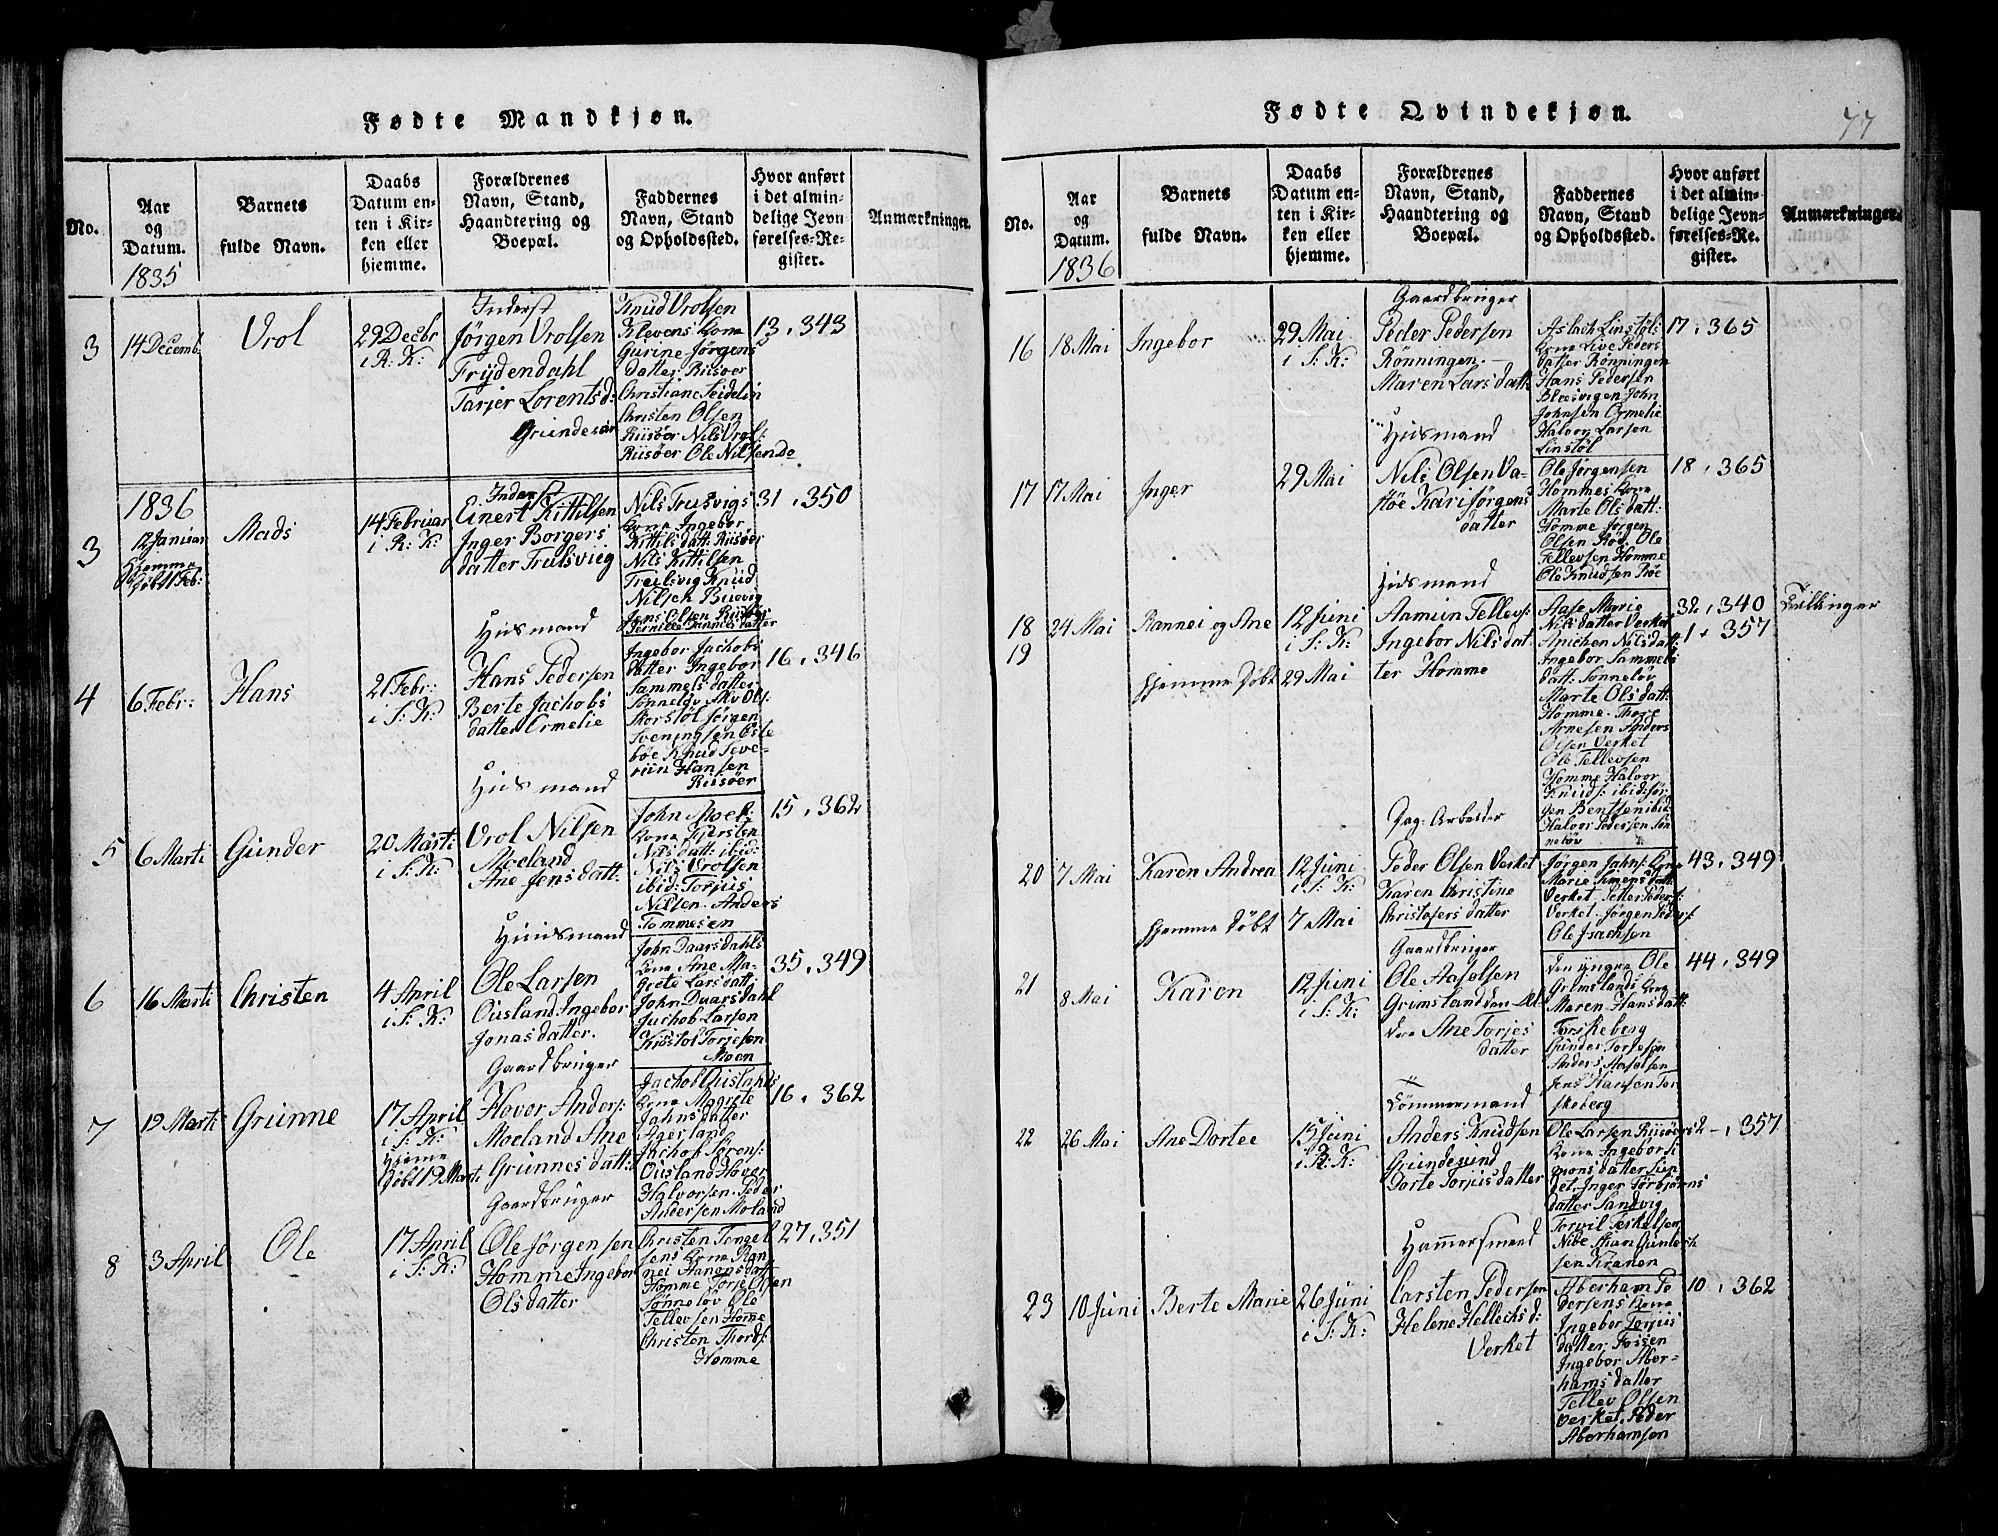 Fødte Mandkjøn.
No.
Aar
og
Datum.
1835
Barnets
fulde Navn.
Daabs
Datum en-
ten i Kir-
ken eller
hjemme.
Forældrenes
Navn, Stand,
Haandtering og
Boepæl.
Faddernes
Navn, Stand
og Opholdssted.
Hvor anført
i det almin-
delige Jevn
førelses-Re-
gister.
Anmærkninger.
3
14 Decemb
Vrol
29 Decbr
i R: K:
Inderst
Jørgen Vrolsen
Frydendahl
Tarjer Lorentsd:
Knud Vrolsen
Klevens Kona
Gurine Jørgens
datter Riisøer
Christiane Seidelin
Christen Olsen
Riisøer Nils Vrols:
Riisøer Ole Nilsen do
13, 343
1836
3
12 Januar
Hjemme
døbt 1 Feb:
Mads
14 Februar
i R: K:
Inderst
Einert Kittilsen
Inger Borgers
datter Trulsvig
Nils Trulsvigs
Kona Ingebor
Kittils datt: Riisøer
Nils Kittilsen
Trulsvig Knud
Nilsen Buevig
Jens Olsen Riisøer
31, 350
4
6 Febr:
Hans
21 Febr:
i S: K:
Husmand
Hans Pedersen
Berte Jachobs
datter Ormelie
Ingebor Jachobs
datter Ingebor
Sammels datter
Sønneløv Aav Ols:
Skorstøl Jørgen
Sveningsen Øste
bøe Knud Seve-
riin Hansen
Riisøer
16, 346
5
6 Marti
Gunder
20 Marti
i S: K:
Husmand
Vrol Nilsen
Moeland
Ane Jens datt:
John Moel:
Kona Kjersten
Nils datt: ibid:
Nils Vrolsen
ibid: Torjus
Nilsen. Anders
Tommesen
15, 362
6
16 Marti
Christen
4 April
i S: K:
Huusmand
Ole Larsen
Ousland Ingebor
Jonas datter.
John Daarsdahls
Kona Ane Ma-
grete Lars datt:
John Duarsdahl
Jachob Larsen
Kristof Torjesen
Moen
35, 349
7
19 Marti
Grunne
17 April
i S: K:
Hjeme
døbt 19 Marti
Gaardbruger
Hovor Anders:
Moeland Ane
Grunnes datt:
Jachob Ouslands
Kona Magrete
Jahns datter
Agerland
Jachob Sørens:
Ousland Hover
Halvorsen. Peder
Andersen Moland
16, 362
8
3 April
Ole
17 April
i S: K:
Gaardbruger
Ole Jørgensen
Homme Ingebor
Ols datter
Christen Tengel
sens Kona Ran
nei Hanens datt
Homme Torje Olsen
Sønneløv Ole
Tellevsen Home
Christen Thords:
Homme
27, 351
Fødte Qvindekjøn.
77
No.
Aar
og
Datum.
1836
Barnets
fulde Navn.
Daabs
Datum en-
ten i Kir-
ken eller
hjemme.
Forældrenes
Navn, Stand,
Haandtering og
Boepæl.
Faddernes
Navn, Stand
og Opholdssted.
Hvor anført
i det almin-
delige Jevn-
førelses-Re.
gister.
Anmærkninger.
16
18 Mai
Ingebor
29 Mai
i S: K:
Gaardbruger
Peder Pedersen
Rönningen.
Maren Lars datt:
Aslach Linstøl:
Kona Live Peders
datter Rønningen
Hans Pedersen
Blæsvigen John
Johnsen Ormelie
Halvor Larsen
Linstøl
17, 365
17
17 Mai
Inger
29 Mai
Husmand
Nils Olsen Va-
støe Kari Jørgens
datter
Ole Jørgensen
Hommes Kona
Marte Ols datt:
Homme Jørgen
Olsen Rød. Ole
Tellevsen Homme
Ole Knudsen Røe
18, 365
18
19
24 Mai
Rannei og Ane
hjemme døbt
12 Juni
i S: K:
29 Mai
Husmand
Aamun Tellevs:
Ingebor Nils dat-
ter Homme
Aase Marie
Nils datter Verket
Anichen Nils datt:
Ingebor Sammels
datt: Sønneløv
Marte Ols datt:
Homme. Thore
Arnesen Anders
Olsen Verket
Ole Tellevsen
Homme Halvor
Knuds: ibid: Jør-
gen Bentsen ibid
Halvor Pedersen Søn
neløv
32, 340
1, 357
Tvillinger
20
7 Mai
Karen Andrea
hjemme døbt
12 Juni
i S: K:
7 Mai
Dag: Arbeider
Peder Olsen Verket
Karen Christine
Christofers datter
Jørgen Jahns: Kona
Marie Simens datt:
Verket Petter Peders:
Verket. Jørgen Peders:
Ole Isachsen
43, 349
21
8 Mai
Karen
12 Juni
i S: K:
Gaardbruger
Ole Aaselsen
Grimsland den El-
dere Ane Torjes
datter
den yngre Ole
Grimslands Kona
Maren Hans datt:
Torskeberg
Gunder Torjesen
Anders Aaselsen
Jens Hansen Tor
skeberg
44, 349
22
26 Mai
Ane Dortee
15 Juni
i R: K:
Tømmermand
Anders Knudsen
Grundesund
Dorte Torjus datter
Ole Larsen Riisøers
Kona Ingebor Si
mons datter Sun
det. Inger Torbjørns
datter Sandvig
Torvil Terkelsen
sen Kranen
2, 357
23
10 Juni
Berte Marie
26 Juni
i S: K:
Hammersmend
Carsten Pedersen
Helene Hellechs d:
Verket
Aberham Pe
dersens Kona
Ingebor Torjus
datter Fossen
Ingebor Aber-
hams datter
Tellev Olsen
Verket. Peder
Aberhamsen
10, 362